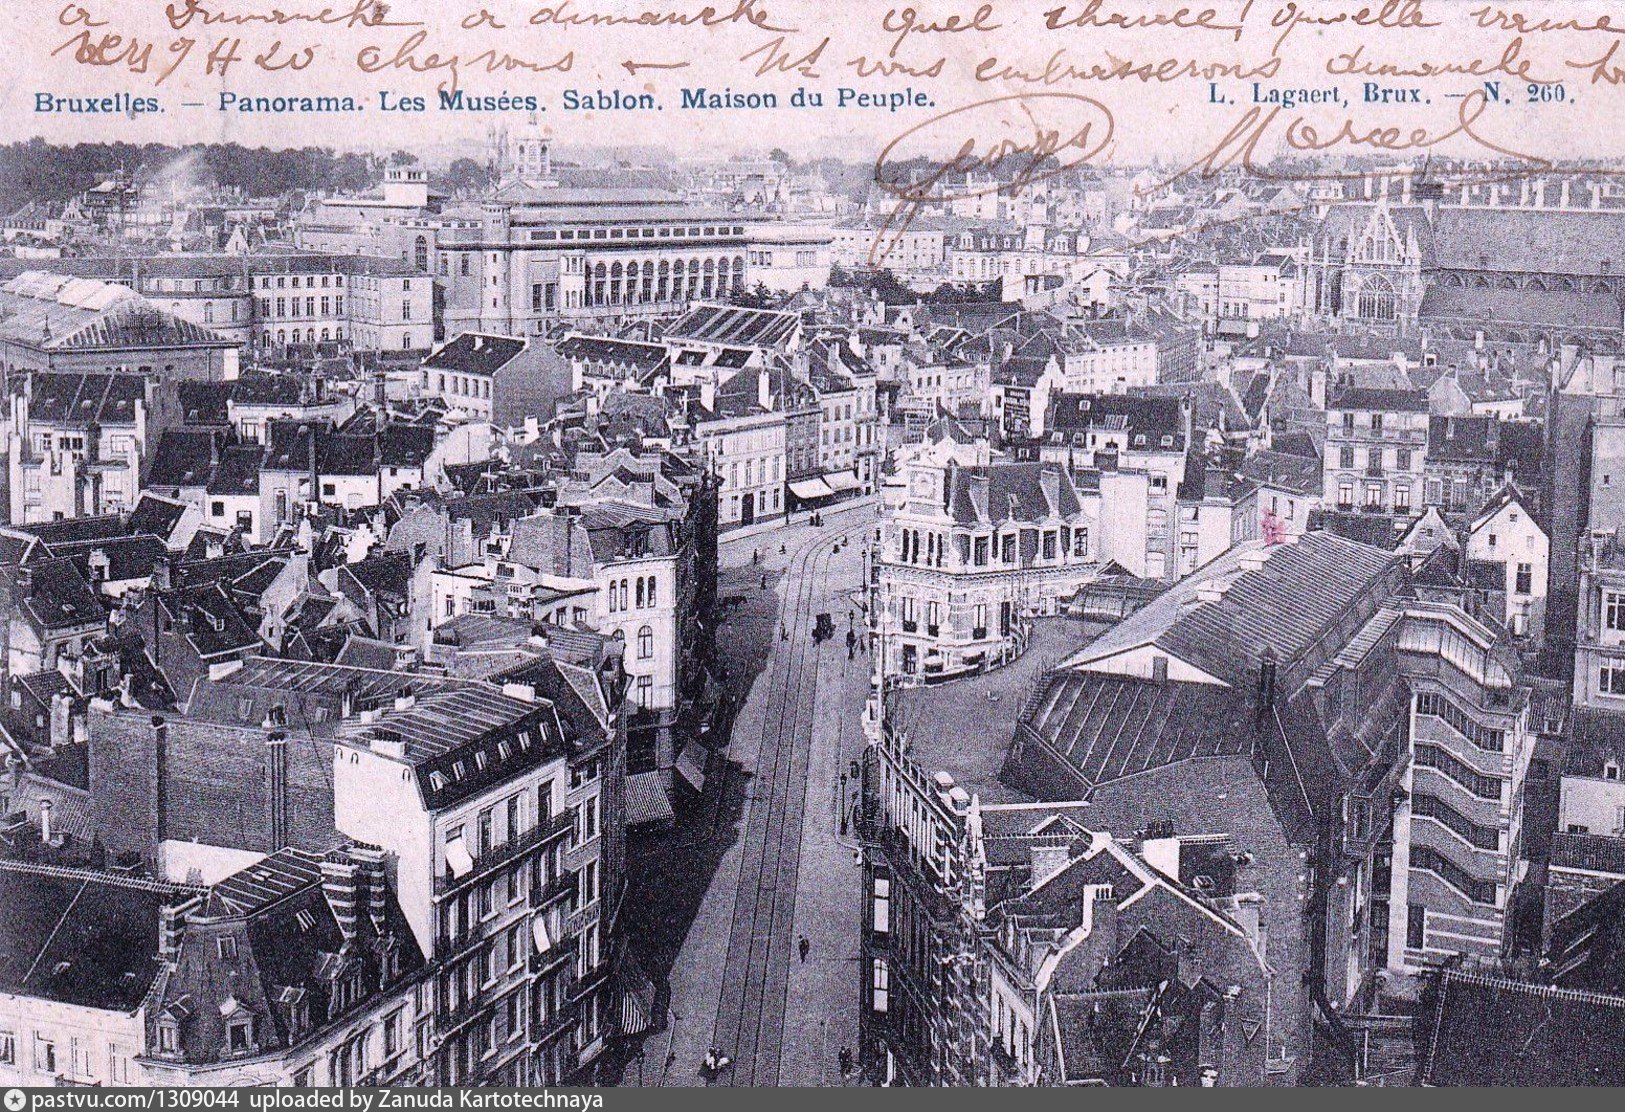 a Dimanche a dimanche quel chance! qu'elle vienne
vers 9 H 20 chez vous. — Ns vous embrasserons dimanche
Bruxelles. — Panorama. Les Musées. Sablon. Maison du Peuple.
L. Lagaert, Brux. — N. 260.
Georges Marcel
pastvu.com/1309044 uploaded by Zanuda Kartotechnaya